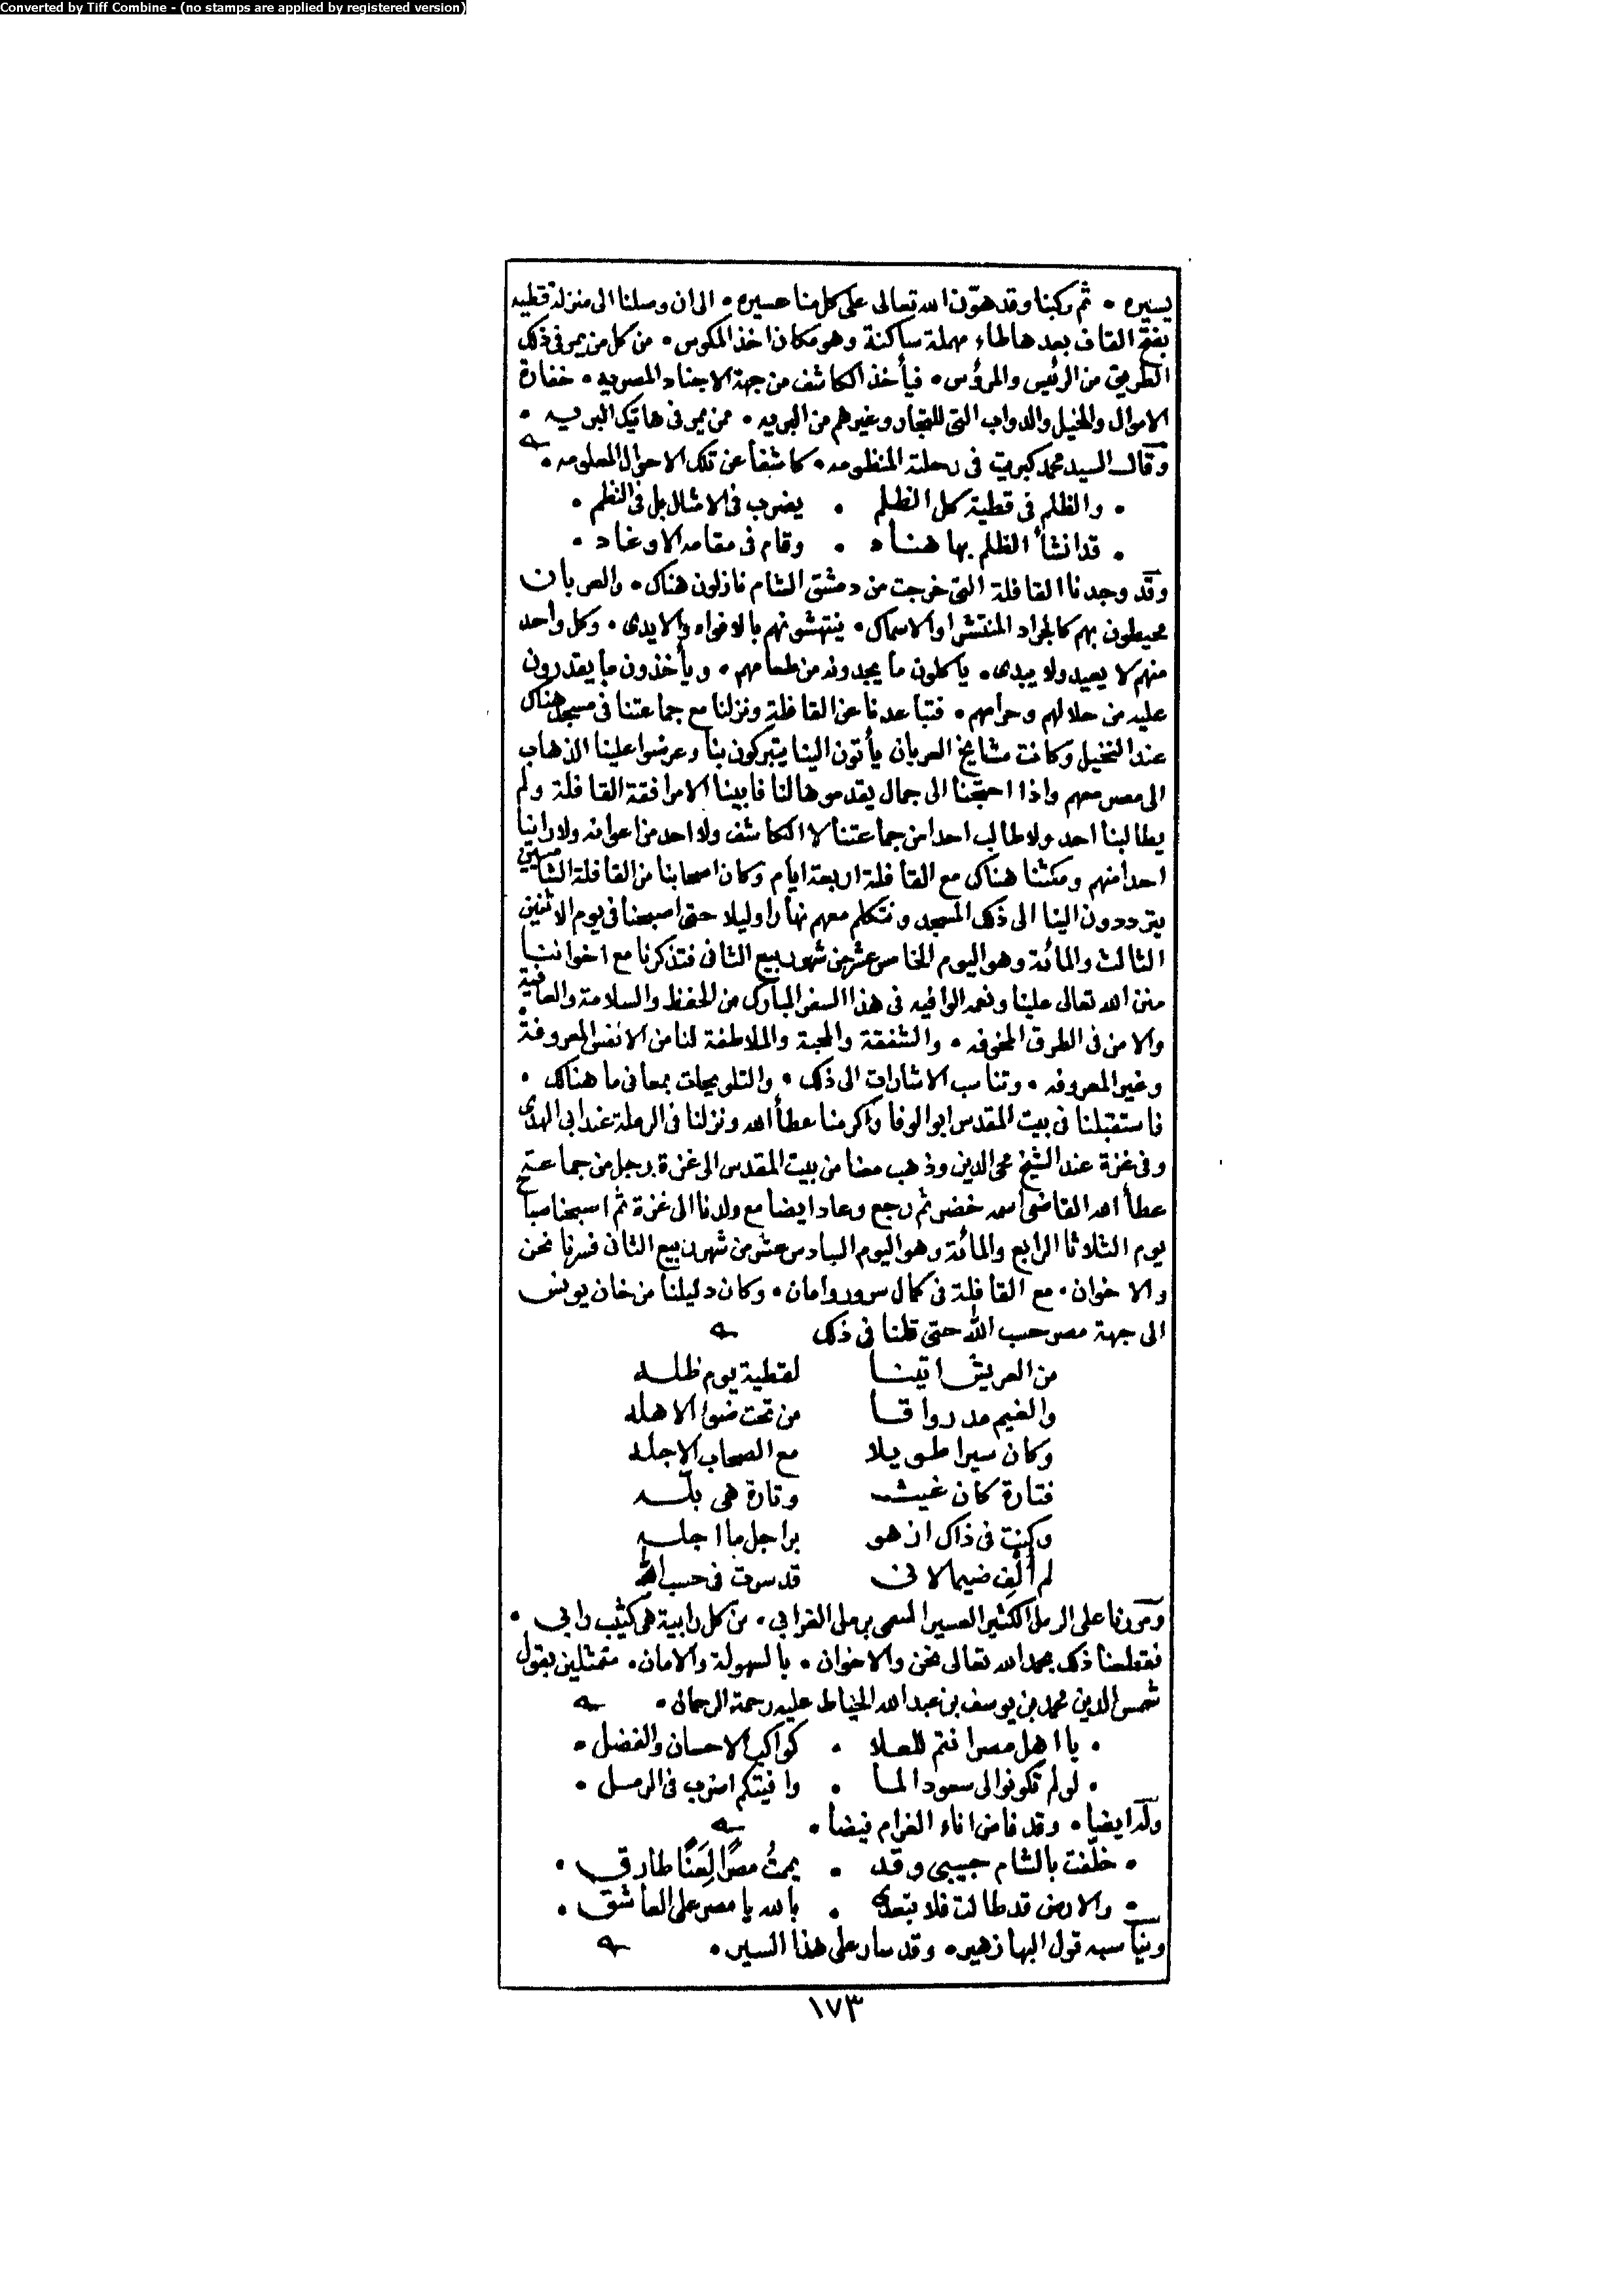 Converted by Tiff Combine - (no stamps are applied by registered version)
يسيره • ثم ركبنا وقد هوّن الله تعالى على كل منا عسيره • الى ان وصلنا الى منزلة قطيه
بفتح القاف بعدها طاء مهملة ساكنة وهو مكان اخذ المكوس • من كل من يمر فى ذلك
الطريق من الرئيس والمرؤس • فيأخذ الكاشف من جهة الاجناد المصريه • خفارة
الاموال والخيل والدواب التى للتجار وغيرهم من البريه • ممن يمر فى هاتيك البريه •
وقال السيد محمد كبريت فى رحلته المنظومه • كاشفا عن تلك الاحوال المعلومه •
• والظلم فى قطية كل الظلم • يضرب فى الامثال بل فى النظم •
• قد انشأ الظلم بها هناد • وقام فى مقامه الاوغاد •
وقد وجدنا القافلة التى خرجت من دمشق الشام نازلون هناك • والعربان
محيطون بهم كالجراد المنتشر او الاسماك • ينتهشونهم بالافواه والايدى • وكل واحد
منهم لا يعيد ولا يبدى • ياكلون ما يجدونه من طعامهم • ويأخذون ما يقدرون
عليه من حلالهم وحرامهم • فتباعدنا عن القافلة ونزلنا مع جماعتنا فى مسجد هناك
عند النخيل وكانت مشايخ العربان يأتون الينا يتبركون بنا وعرضوا علينا الذهاب
الى مصر معهم واذا احتجنا الى جمال يقدموها لنا فابينا الا مرافقة القافلة ولم
يطالبنا احد ولا طالب احدا من جماعتنا لا الكاشف ولا احد من اعوانه ولا راينا
احدا منهم ومكثنا هناك مع القافلة اربعة ايام وكان اصحابنا من القافلة الشاميين
يترددون الينا الى ذلك المسجد ونتكلم معهم نهارا وليلا حتى اصبحنا فى يوم الاثنين
الثالث والمائة وهو اليوم الخامس عشر من شهر ربيع الثانى فتذكرنا مع اخواننا
منن الله تعالى علينا ونعمه الوافيه فى هذا السفر المبارك من الحفظ والسلامة والعافية
والامن فى الطرق المخوفه • والشفقة والمحبة والملاطفة لنا من الانفس المعروفة
وغير المعروفه • وتناسب الاشارات الى ذلك • والتلويحات بمعانى ما هنالك •
فاستقبلنا فى بيت المقدس ابو الوفا واكرمنا عطأ الله ونزلنا فى الرملة عند ابى الهدى
وفى غزة عند الشيخ محى الدين وذهب معنا من بيت المقدس الى غزة رجل من جماعة
عطأ الله القاضى اسمه خضر ثم رجع وعاد ايضا مع ولدنا الى غزة ثم اصبحنا صباح
يوم الثلاثا الرابع والمائة وهو اليوم السادس عشر من شهر ربيع الثانى فسرنا نحن
والاخوان • مع القافلة فى كمال سرور وامان • وكان دليلنا من خان يونس
الى جهة مصر حسب الله حتى قلنا فى ذلك
من العريش اتينا لقطية يوم ظله
والغيم مد رواقا من تحت ضوء الاهله
وكان سيرا طويلا مع الصحاب الاجله
فتارة كان غيث وتارة هى بله
وكنت فى ذاك ازهو براجل ما اجله
لم أُلفِ ضيما لانى قد سرت فى حسب الله
ومررنا على الرمل الكثير العسير المسمى برمل الغرابي • من كل رابية هى كثيب رابي •
فقطعنا ذلك بحمد الله تعالى نحن والاخوان • بالسهولة والامان • متمثلين بقول
شمس الدين محمد بن يوسف بن عبد الله الخياط عليه رحمة الرحمان •
• يا اهل مصر انتم للعلا • كواكب الاحسان والفضل •
• لو لم تكونوا لى سعودا لما • وافيتكم اضرب فى الرمل •
وله ايضا • وقد فاض اناء الغرام فيضا •
• خلّفت بالشام حبيبى وقد • يممتُ مصرًا لِعَنًا طارق •
• والارض قد طالت فلا تبعدى • بالله يا مصر على العاشق •
ويناسبه قول البها زهير • وقد سار على هذا السير •
١٧٣